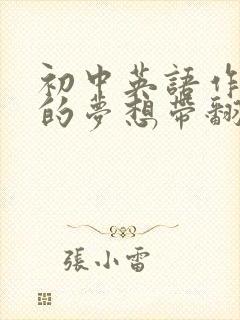 初中英語作
的夢想帶翻
張小雷